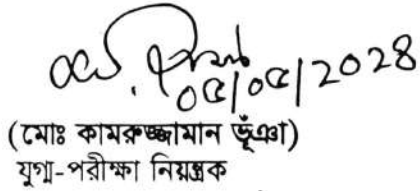 ০৫/০৫/2028
(মোঃ কামরুজ্জামান ভূঁঞা)
যুগ্ম-পরীক্ষা নিয়ন্ত্রক